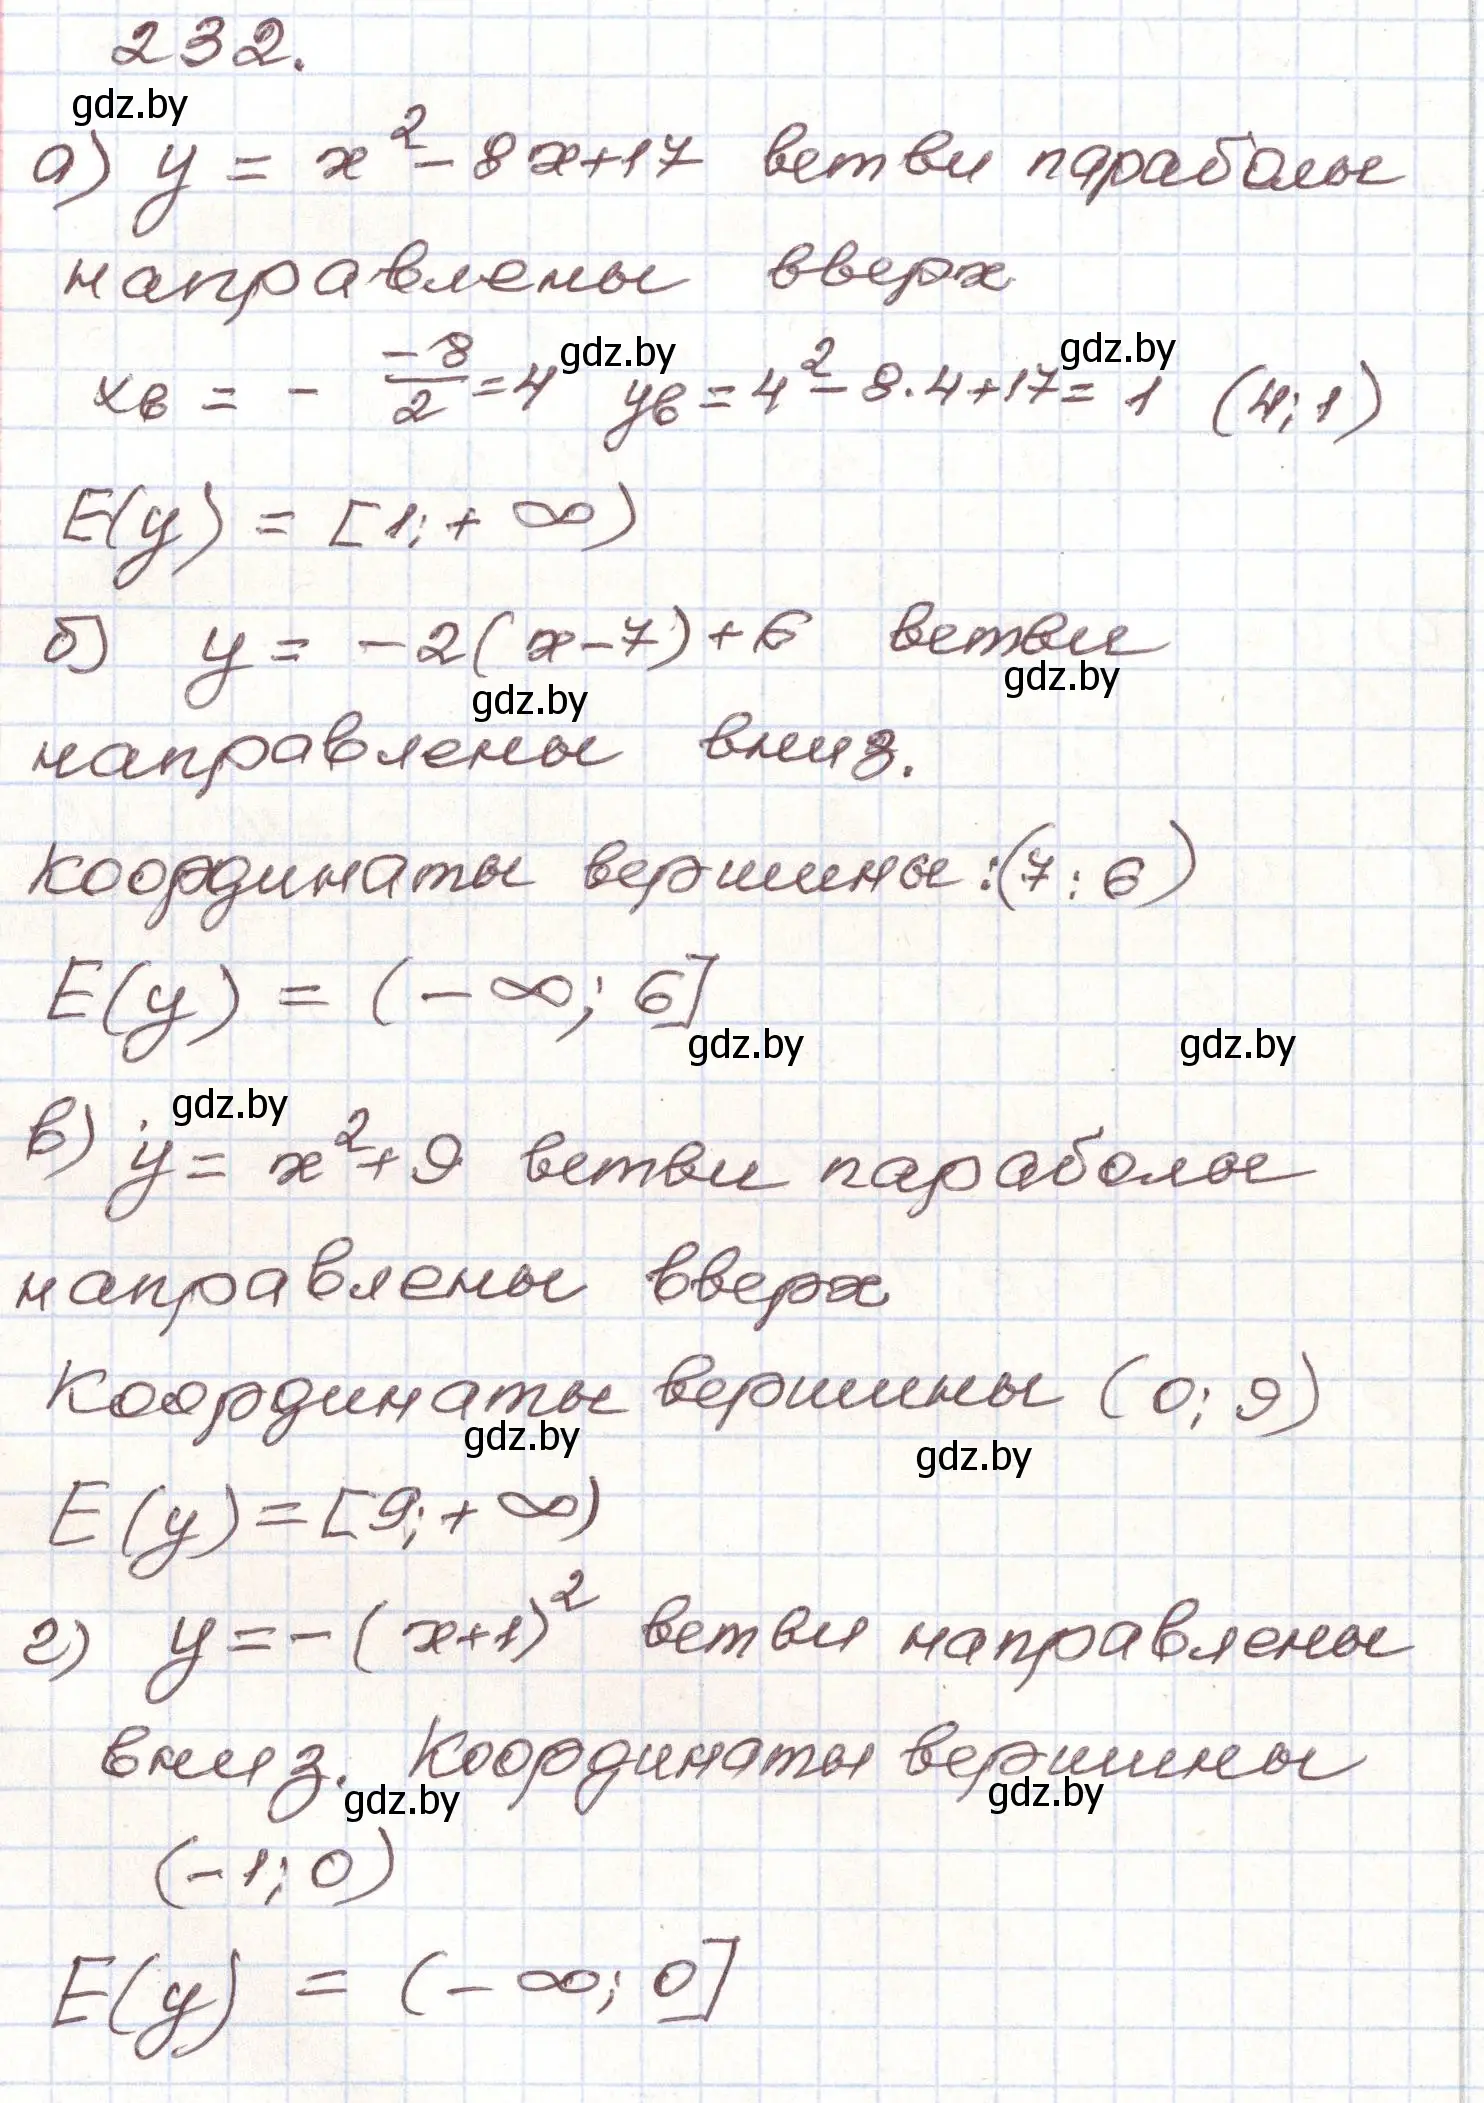 232.
gdz.by
а) y = x² - 8x + 17 ветви параболы
направлены вверх
xв = - -8/2 = 4 gdz.by yв = 4² - 8·4 + 17 = 1 (4; 1) gdz.by
E(y) = [1; + ∞)
б) y = -2(x - 7) + 6 ветви
gdz.by gdz.by
направлены вниз.
Координаты вершины: (7; 6)
E(y) = (- ∞; 6]
gdz.by gdz.by
gdz.by
в) y = x² + 9 ветви параболы
направлены вверх
Координаты вершины (0; 9)
gdz.by gdz.by
E(y) = [9; + ∞)
г) y = -(x+1)² ветви направлены
вниз. Координаты вершины
gdz.by gdz.by
(-1; 0)
E(y) = (- ∞; 0]